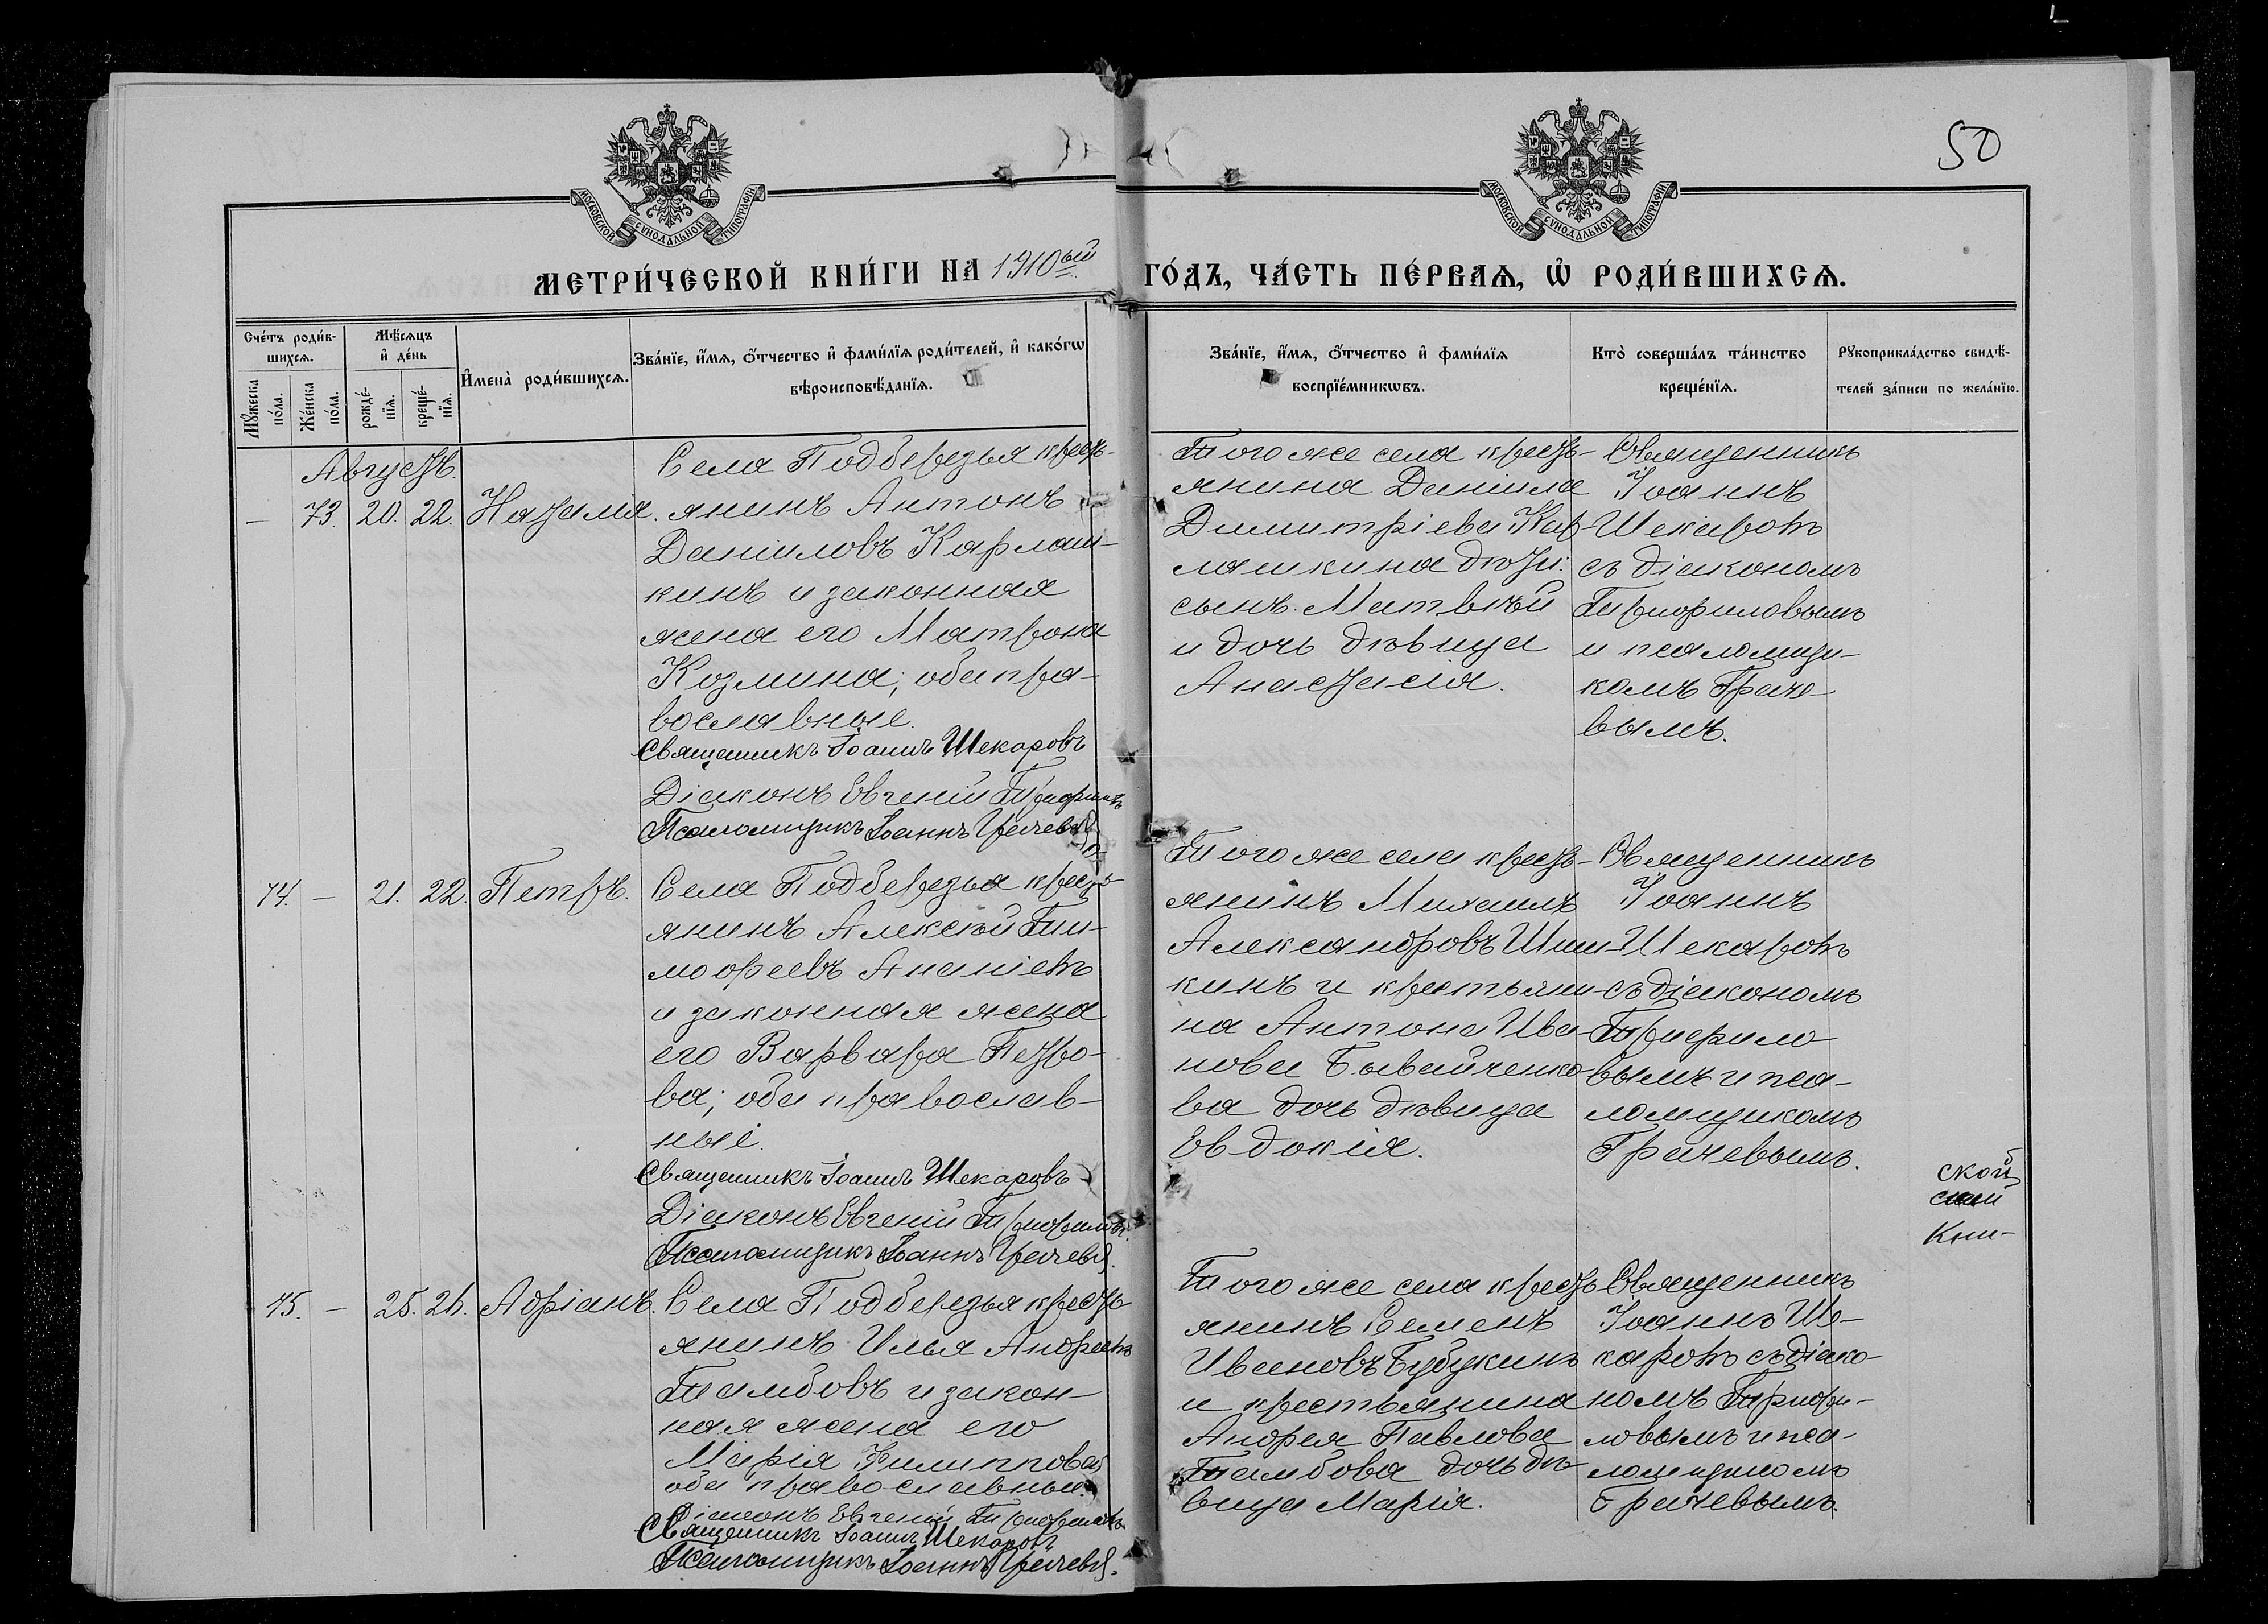 50
МОСКОВСКОЙ СѴНОДАЛЬНОЙ ТИПОГРАФІИ
МОСКОВСКОЙ СѴНОДАЛЬНОЙ ТИПОГРАФІИ
МЕТРИ́ЧЕСКОЙ КНИ́ГИ НА 1910ый ГО́ДЪ, ЧА́СТЬ ПЕ́РВАѦ, Ѡ҆ РОДИ́ВШИХСѦ.
Сче́тъ роди́в-
шихсѧ.
Мѹ́жеска
по́ла.
Же́нска
по́ла.
Мѣ́сѧцъ
и҆ де́нь
рожде́-
нїѧ.
креще́-
нїѧ.
И҆мена̀ роди́вшихсѧ.
Зва́нїе, и҆́мѧ, ѻ҆́тчество и҆ фами́лїѧ роди́телей, и҆ како́гѡ
вѣроисповѣ́данїѧ.
Зва́нїе, и҆́мѧ, ѻ҆́тчество и҆ фами́лїѧ
воспрїе́мникѡвъ.
Кто̀ соверша́лъ та́инство
креще́нїѧ.
Рꙋкоприкла́дство свидѣ́-
телей за́писи по жела́нїю.
Августъ.
— 73. 20. 22. Наталія.
Села Подберезья кресть-
янинъ Антонъ
Даниловъ Карлаш-
кинъ и законная
жена его Матрона
Козмина; оба пра-
вославные.
Священникъ Іоаннъ Шекаровъ
Діаконъ Евгеній
Псаломщикъ Іоаннъ Грачевъ
Того же села кресть-
янина Данила
Димитріева Кар-
лашкина дѣти:
сынъ Матвѣй
и дочь дѣвица
Анастасія.
Священникъ
Іоаннъ
Шекаровъ
съ діакономъ
Трифиловымъ
и псаломщи-
комъ Граче-
вымъ.
74. — 21. 22. Петръ.
Села Подберезья кресть-
янинъ Алексѣй Тим-
мофеевъ Ананіевъ
и законная жена
его Варвара Петро-
ва; оба православ-
ные.
Священникъ Іоаннъ Шекаровъ
Діаконъ Евгеній
Псаломщикъ Іоаннъ Грачевъ.
Того же села кресть-
янинъ Михаилъ
Александровъ Шиш-
кинъ и крестьяни-
на Антона Ива-
нова
ва дочь дѣвица
Евдокія.
Священникъ
Іоаннъ
Шекаровъ
съ діакономъ
Трифило-
вымъ и пса-
ломщикомъ
Грачевымъ.
ской
кни-
75. — 25. 26. Адріанъ.
Села Подберезья кресть-
янинъ Илья Андреевъ
Тамбовъ и закон-
ная жена его
Марія Филиппова;
оба православные.
Діаконъ Евгеній
Священникъ Іоаннъ Шекаровъ
Псаломщикъ Іоаннъ Грачевъ.
Того же села кресть-
янинъ Семенъ
Ивановъ Бубукинъ
и крестьянина
Андрея Павлова
Тамбова дочь дѣ-
вица Марія.
Священникъ
Іоаннъ Ше-
каровъ съ діако-
номъ Трифи-
ловымъ и пса-
ломщикомъ
Грачевымъ.